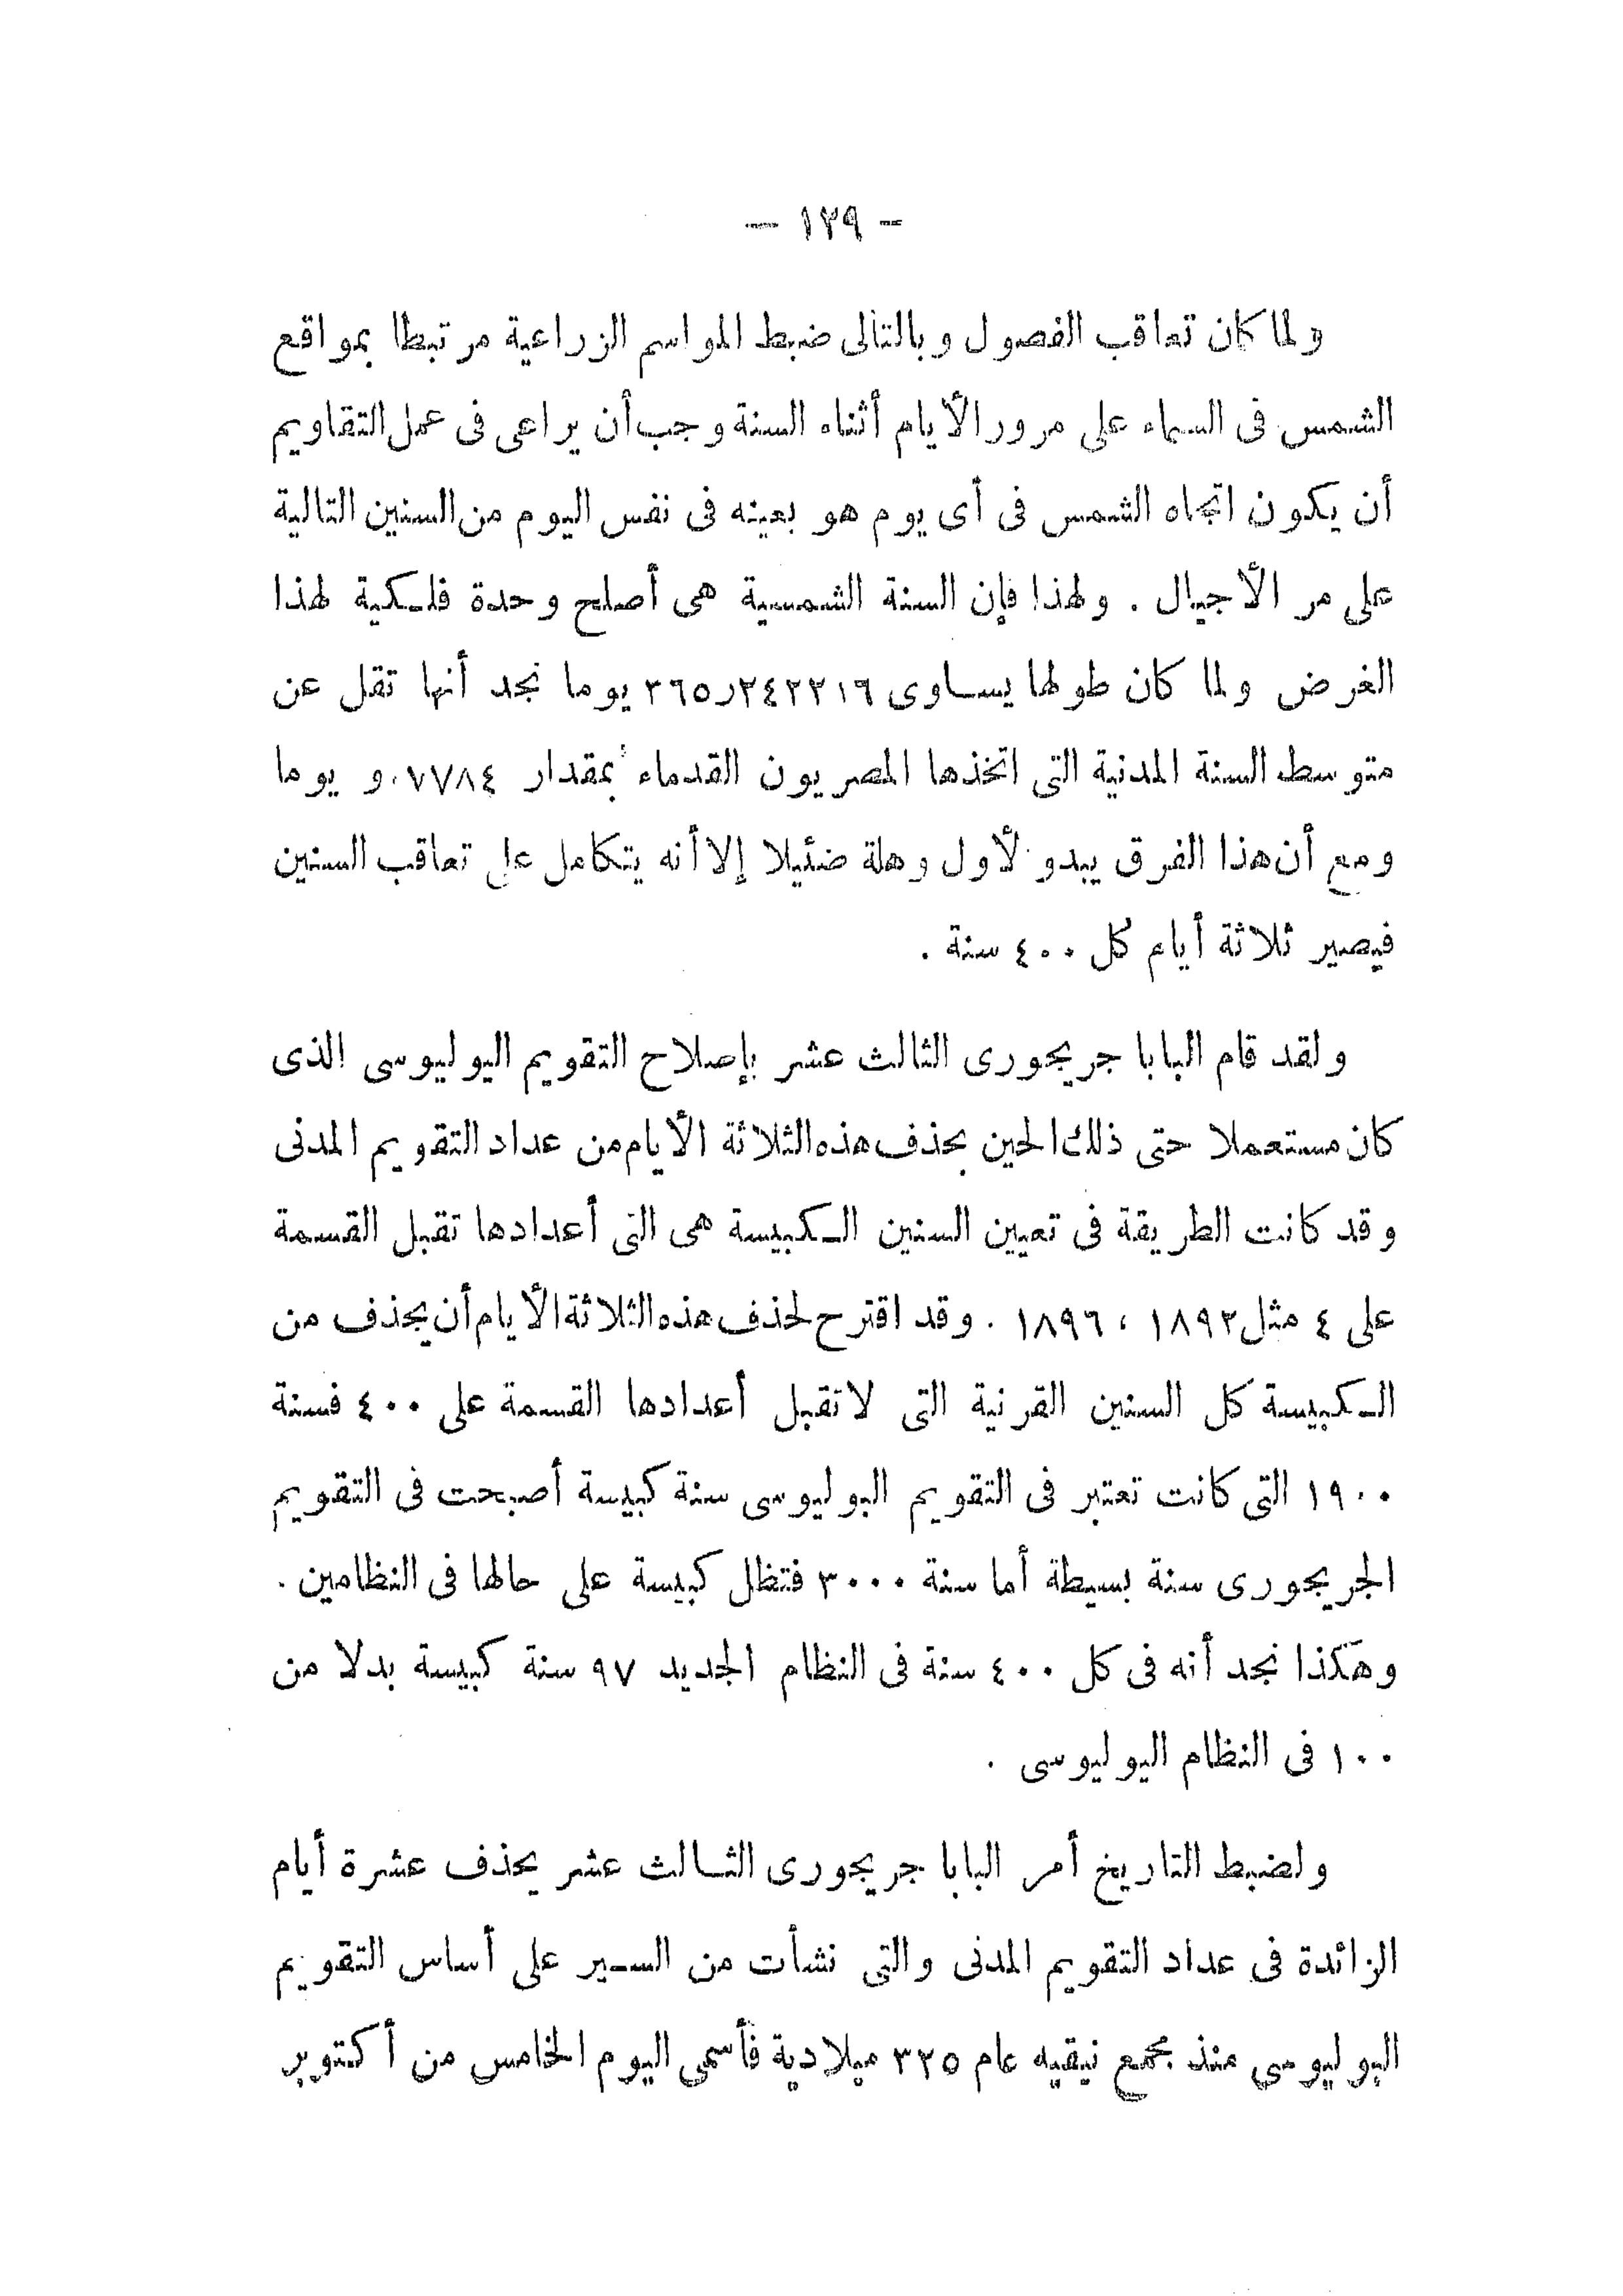 - ١٢٩ -
ولما كان تعاقب الفصول وبالتالى ضبط المواسم الزراعية مرتبطا بمواقع
الشمس فى السماء على مرور الأيام أثناء السنة وجب أن يراعى فى عمل التقاويم
أن يكون اتجاه الشمس فى أى يوم هو بعينه فى نفس اليوم من السنين التالية
على مر الأجيال . ولهذا فإن السنة الشمسية هى أصلح وحدة فلكية لهذا
الغرض ولما كان طولها يساوى ٣٦٥٫٢٤٢٢١٦ يوما نجد أنها تقل عن
متوسط السنة المدنية التى اتخذها المصريون القدماء بمقدار ٠٠٧٧٨٤و يوما
ومع أن هذا الفرق يبدو لأول وهلة ضئيلا إلا أنه يتكامل على تعاقب السنين
فيصير ثلاثة أيام كل ٤٠٠ سنة .
ولقد قام البابا جريجورى الثالث عشر بإصلاح التقويم اليوليوسى الذى
كان مستعملا حتى ذلك الحين بحذف هذه الثلاثة الأيام من عداد التقويم المدنى
وقد كانت الطريقة فى تعيين السنين الكبيسة هى التى أعدادها تقبل القسمة
على ٤ مثل ١٨٩٢ ، ١٨٩٦ . وقد اقترح لحذف هذه الثلاثة الأيام أن يحذف من
الكبيسة كل السنين القرنية التى لا تقبل أعدادها القسمة على ٤٠٠ فسنة
١٩٠٠ التى كانت تعتبر فى التقويم اليوليوسى سنة كبيسة أصبحت فى التقويم
الجريجورى سنة بسيطة أما سنة ٣٠٠٠ فتظل كبيسة على حالها فى النظامين .
وهكذا نجد أنه فى كل ٤٠٠ سنة فى النظام الجديد ٩٧ سنة كبيسة بدلا من
١٠٠ فى النظام اليوليوسى .
ولضبط التاريخ أمر البابا جريجورى الثالث عشر بحذف عشرة أيام
الزائدة فى عداد التقويم المدنى والتى نشأت من السير على أساس التقويم
اليوليوسى منذ مجمع نيقيه عام ٣٢٥ ميلادية فأسمى اليوم الخامس من أكتوبر